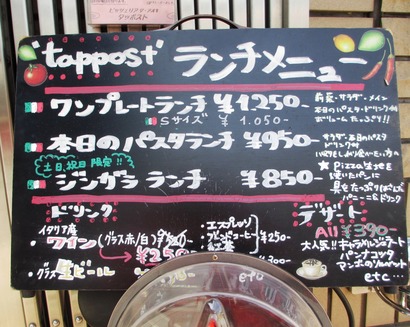 "tappost" ランチメニュー
ワンプレートランチ ¥1250-
Sサイズ ¥1.050-
前菜・サラダ・メイン
本日のパスタ・ドリンク付
ボリュームたっぷり!!
本日のパスタランチ ¥950-
サラダ・本日のパスタ
ドリンク付
土日、祝日限定!!
ジンガラ ランチ ¥850-
★ Pizza生地を
焼いたパンに
具をたっぷり
パニーニ&ドリンク
ドリンク
イタリア産
ワイン(グラス赤/白)
¥250
グラス生ビール
・エスプレッソ
・ブレンドコーヒー
・紅茶
¥250-
etc
デザート
All ¥390-
大人気!! キャラメルジェラート
パンナコッタ
マンゴのソルベット
etc...